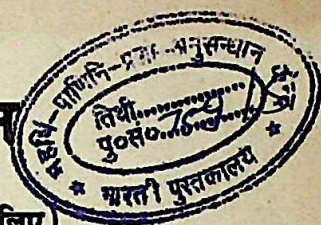 महर्षि-पाणिनि-प्रभा-अनुसन्धान
तिथी..........
पु०स०..........
भारती पुस्तकालय
लिए